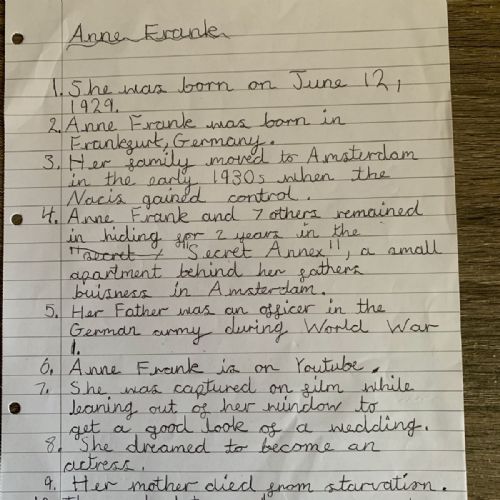 Anne Frank
1. She was born on June 12,
1929.
2. Anne Frank was born in
Frankfurt, Germany.
3. Her family moved to Amsterdam
in the early 1930s when the
Nacis gained control.
4. Anne Frank and 7 others remained
in hiding for 2 years in the
"secret "Secret Annex", a small
apartment behind her fathers
buisness in Amsterdam.
5. Her Father was an officer in the
German army during World War
1.
6. Anne Frank is on Youtube.
7. She was captured on film while
leaning out of her window to
get a good look of a wedding.
8. She dreamed to become an
actress.
9. Her mother died from starvation.